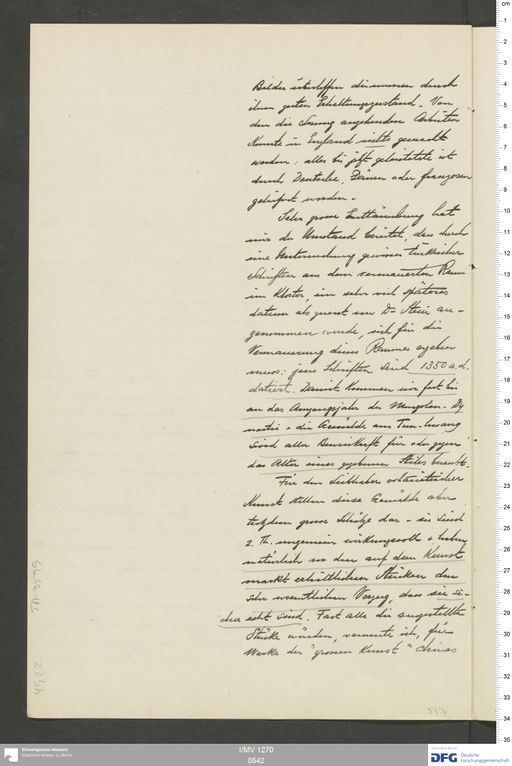 Bilder übertreffen die unseren durch
ihren guten Erhaltungszustand. Von
den die Lesung angehenden Arbeiten
konnte in England nichts gemacht
werden: alles bis jetzt geleistete ist
durch Deutsche, Dänen oder Franzosen
geliefert worden.
Sehr grosse Enttäuschung hat
mir der Umstand bereitet, dass durch
eine Untersuchung gewisser türkischer
Schriften aus dem vermauerten Raum
im Kloster, ein sehr viel späteres
datum als zuerst von Dr Stein an-
genommen wurde, sich für die
Vermauerung dieses Raumes ergeben
muss: jene Schriften sind 1350 a.d.
datiert. Damit kommen wir fast bis
an das Anfangsjahr der Mingdyn. Dy
nastie & die Gemälde aus Tun-huang
sind aller Beweiskraft für oder gegen
das Alter eines gegebenen Stiles beraubt.
Für den Liebhaber ostasiatischer
Kunst stellen diese Gemälde aber
trotzdem grosse Schätze dar - sie sind
z. Th. ungemein wirkungsvoll & haben
natürlich vor den auf dem Kunst
markt erhältlichen Stücken den
sehr wesentlichen Vorzug, dass sie si-
cher echt sind. Fast alle die ausgestellten
Stücke würden, vermute ich, für
Werke der "grossen Kunst" Chinas
517
TA 3599
4922
Ethnologisches Museum
Staatliche Museen zu Berlin
I/MV 1270
0542
DFG Deutsche
Forschungsgemeinschaft
cm
1
2
3
4
5
6
7
8
9
10
11
12
13
14
15
16
17
18
19
20
21
22
23
24
25
26
27
28
29
30
31
32
33
34
35